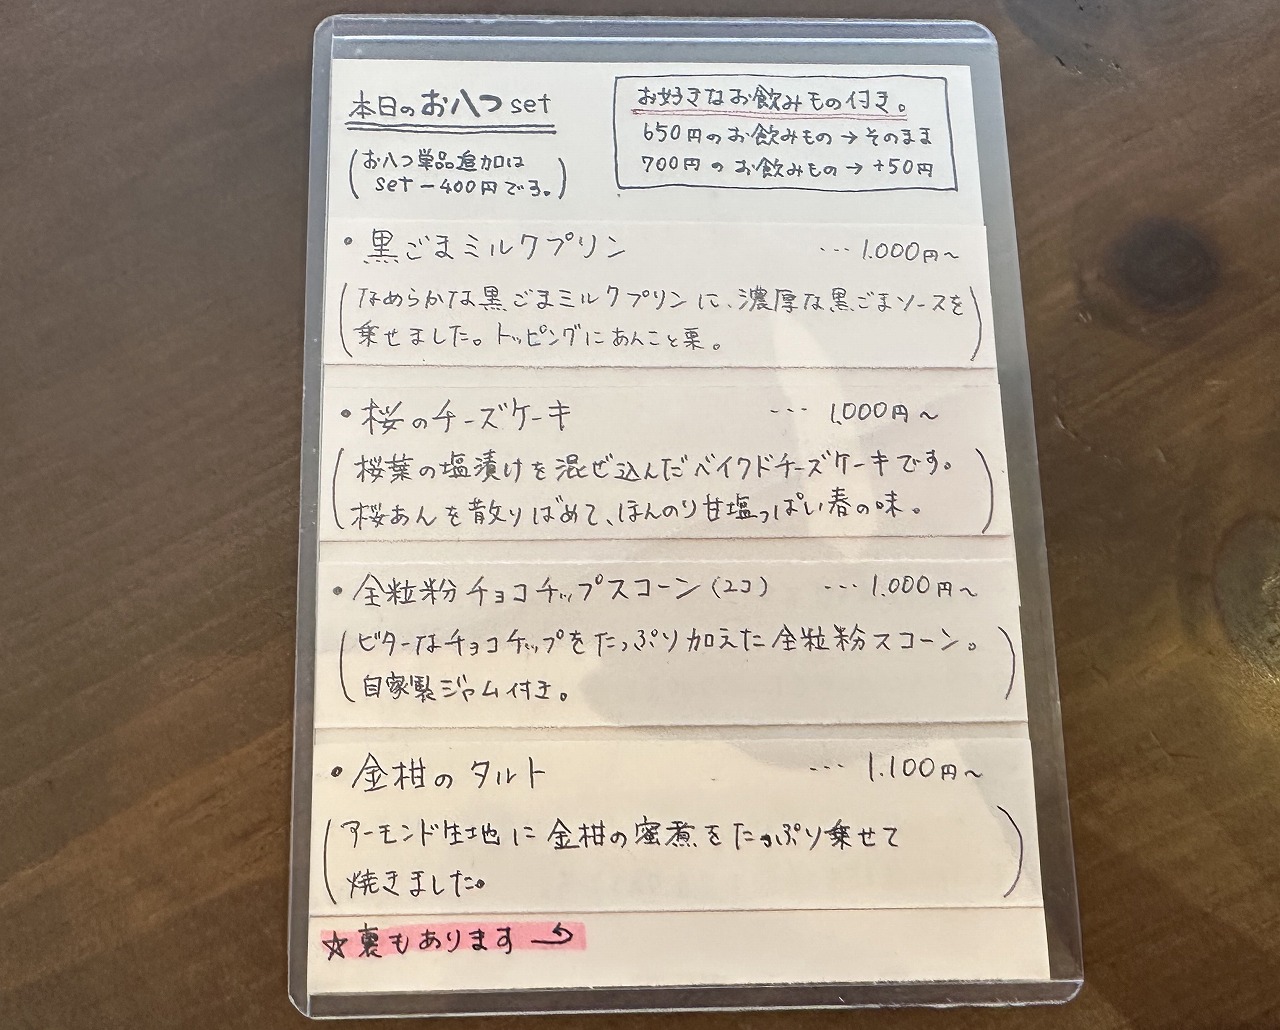 本日のお八つset
(お八つ単品追加は
set-400円です。)
お好きなお飲みもの付き。
650円のお飲みもの→そのまま
700円のお飲みもの→+50円
・黒ごまミルクプリン …1.000円～
(なめらかな黒ごまミルクプリンに、濃厚な黒ごまソースを
乗せました。トッピングにあんこと栗。)
・桜のチーズケーキ …1.000円～
(桜葉の塩漬けを混ぜ込んだベイクドチーズケーキです。
桜あんを散りばめて、ほんのり甘塩っぱい春の味。)
・全粒粉チョコチップスコーン(2コ) …1.000円～
(ビターなチョコチップをたっぷり加えた全粒粉スコーン。
自家製ジャム付き。)
・金柑のタルト …1.100円～
(アーモンド生地に金柑の蜜煮をたっぷり乗せて
焼きました。)
☆裏もあります